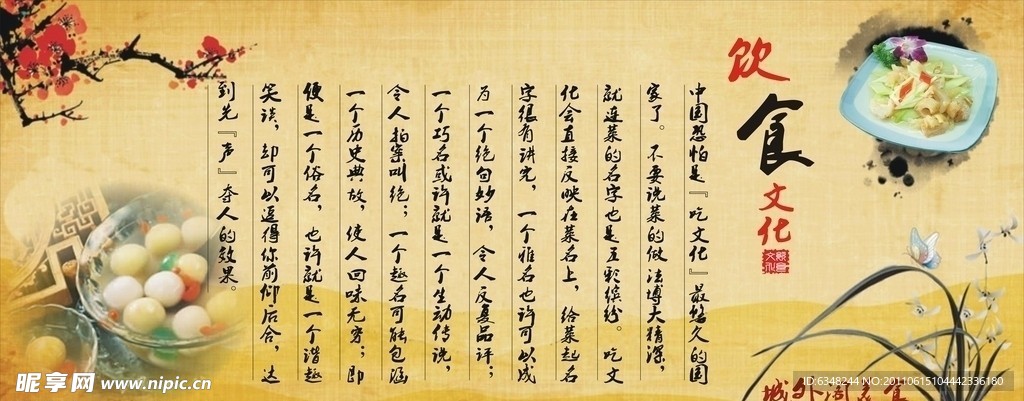 饮食文化
中国恐怕是『吃文化』最悠久的国
家了。不要说菜的做法博大精深，
就连菜的名字也是五彩缤纷。吃文
化会直接反映在菜名上，给菜起名
字很有讲究，一个雅名也许可以成
为一个绝句妙语，令人反复品评；
一个巧名或许就是一个生动传说，
令人拍案叫绝；一个趣名可能包涵
一个历史典故，使人回味无穷；即
便是一个俗名，也许就是一个谐趣
笑谈，却可以逗得你前仰后合，达
到先『声』夺人的效果。
昵享网 www.nipic.cn
ID:6348244 NO:20110615104442336180